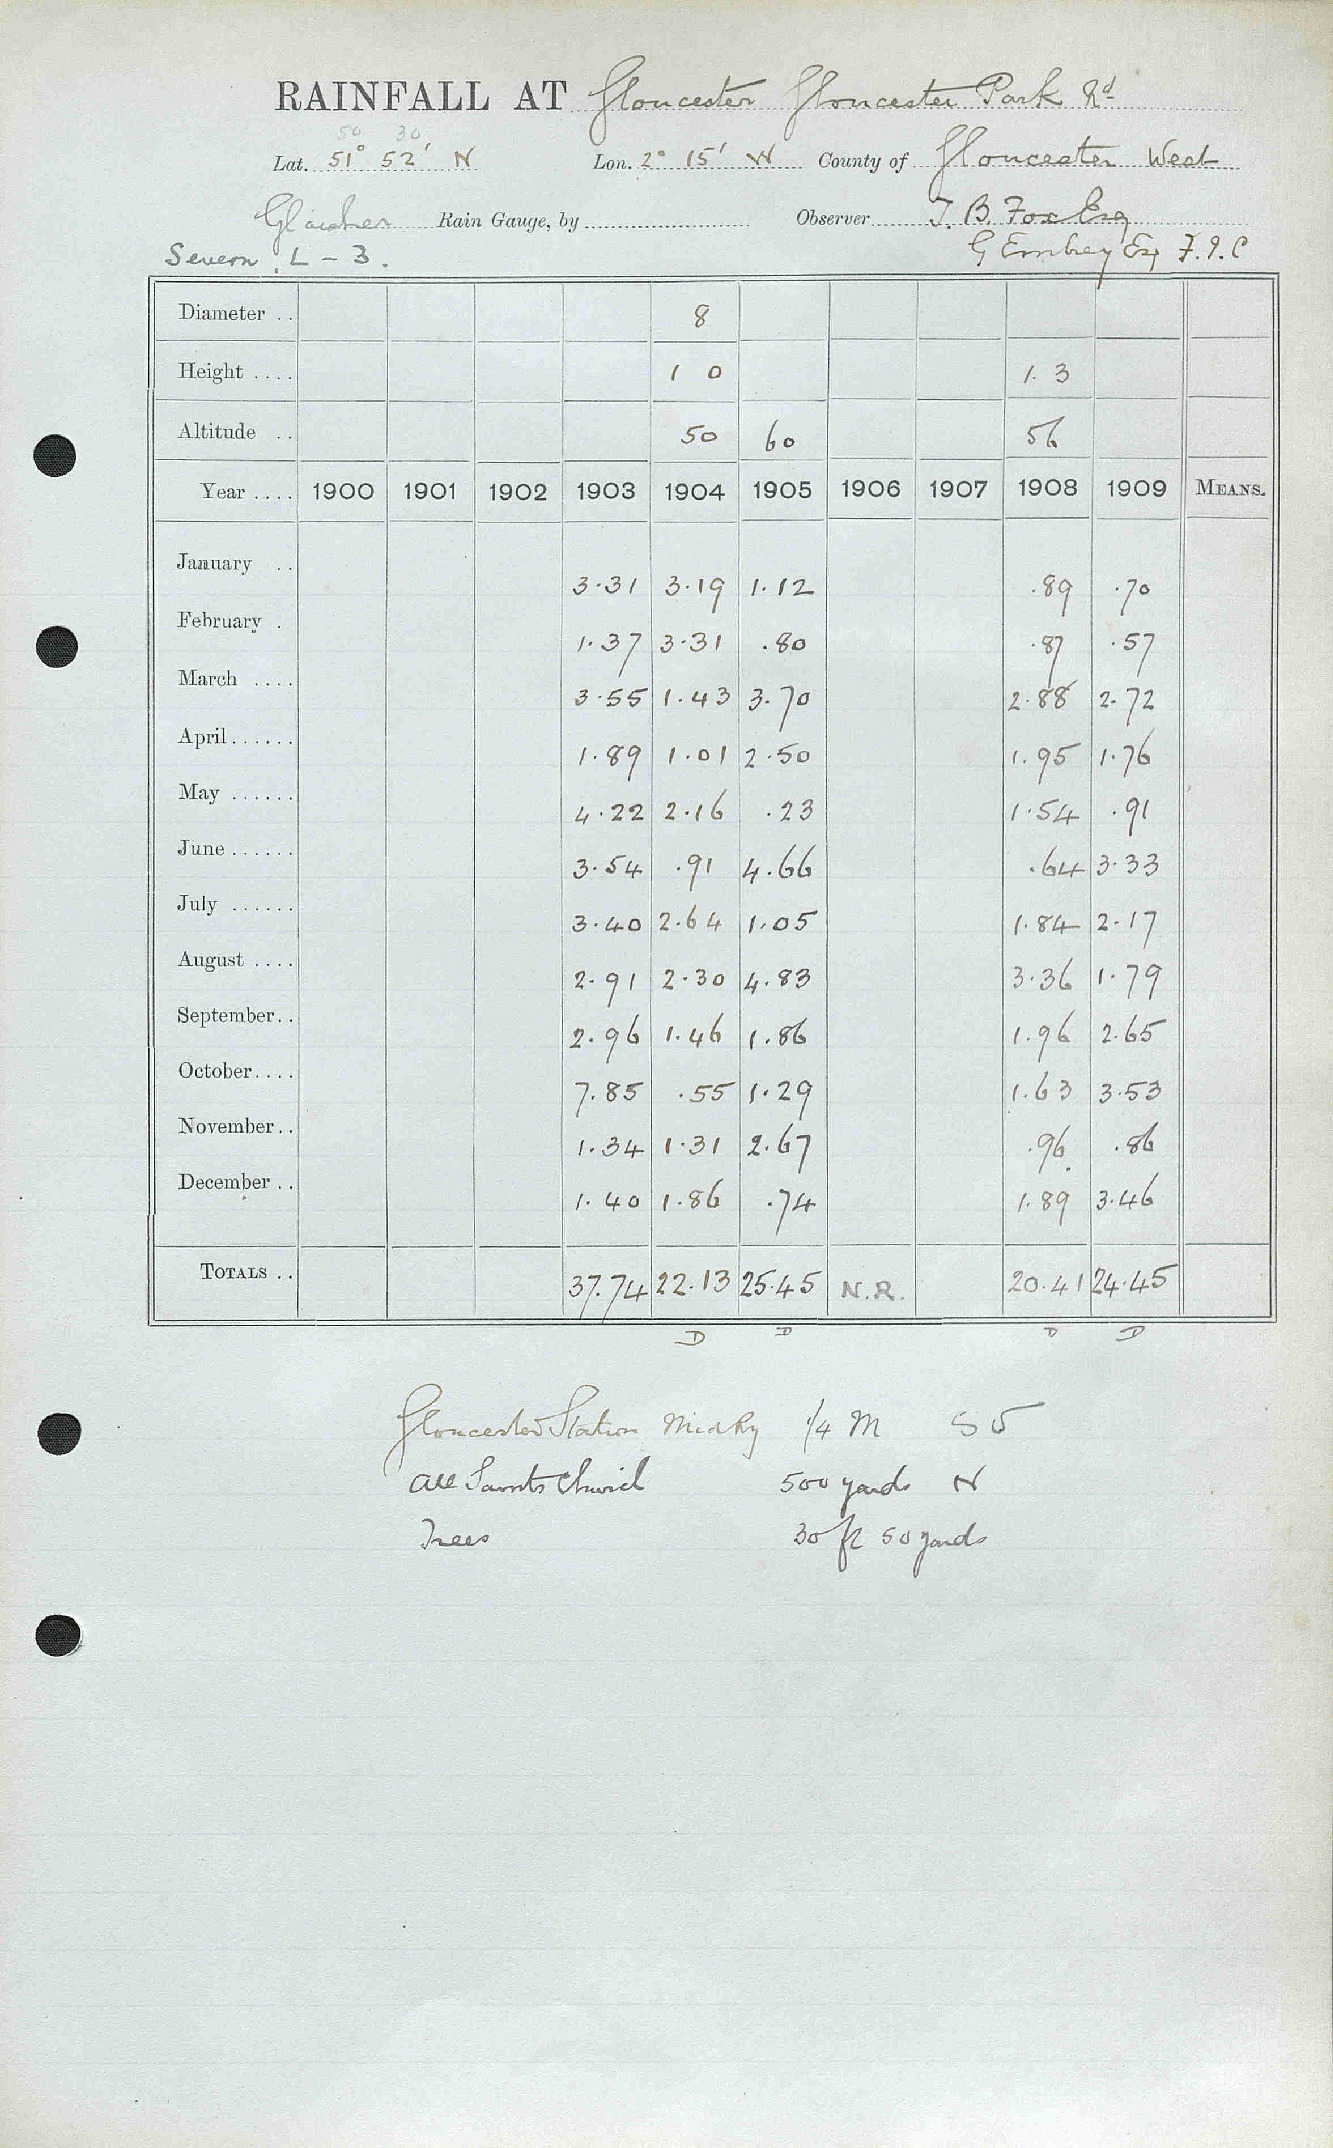 RAINFALL AT Gloucester Gloucester Park Rd
50 30
Lat. 51° 52' N Lon. 2° 15' W County of Gloucester West
Glaisher Rain Gauge, by Observer T. B. Fox Esq
Severn L - 3. G Embrey Esq F.I.C
Diameter .. 8
Height .... 1 0 1. 3
Altitude .. 50 60 56
Year .... 1900 1901 1902 1903 1904 1905 1906 1907 1908 1909 MEANS.
January .. 3.31 3.19 1.12 .89 .70
February . 1.37 3.31 .80 .87 .57
March .... 3.55 1.43 3.70 2.88 2.72
April...... 1.89 1.01 2.50 1.95 1.76
May ...... 4.22 2.16 .23 1.54 .91
June ...... 3.54 .91 4.66 .64 3.33
July ...... 3.40 2.64 1.05 1.84 2.17
August .... 2.91 2.30 4.83 3.36 1.79
September.. 2.96 1.46 1.86 1.96 2.65
October.... 7.85 .55 1.29 1.63 3.53
November.. 1.34 1.31 2.67 .96 .86
December .. 1.40 1.86 .74 1.89 3.46
TOTALS .. 37.74 22.13 25.45 N.R. 20.41 24.45
D D D D
Gloucester Station Mid Ry 1/4 M 55
All Saints Church 500 yards N
Trees 30 ft 50 yards